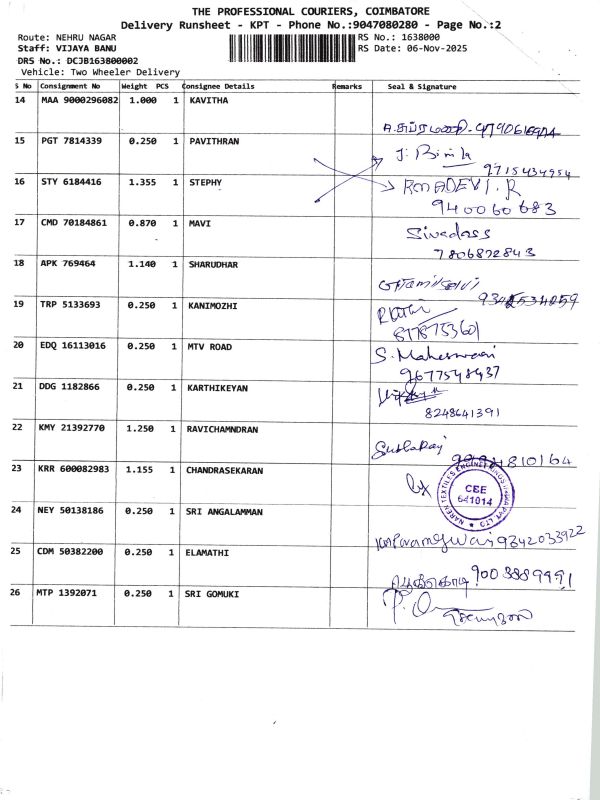 THE PROFESSIONAL COURIERS, COIMBATORE
Delivery Runsheet - KPT - Phone No.:9047080280 - Page No.:2
Route: NEHRU NAGAR RS No.: 1638000
Staff: VIJAYA BANU RS Date: 06-Nov-2025
DRS No.: DCJB163800002
Vehicle: Two Wheeler Delivery
S No Consignment No Weight PCS Consignee Details Remarks Seal & Signature
14 MAA 9000296082 1.000 1 KAVITHA
15 PGT 7814339 0.250 1 PAVITHRAN
J. Bimla
9715434954
16 STY 6184416 1.355 1 STEPHY
RMADEVI.R
940060683
17 CMD 70184861 0.870 1 MAVI
Sivadass
7806872843
18 APK 769464 1.140 1 SHARUDHAR
19 TRP 5133693 0.250 1 KANIMOZHI
8778753601
20 EDQ 16113016 0.250 1 MTV ROAD
S. Maheswari
9677548437
21 DDG 1182866 0.250 1 KARTHIKEYAN
8248641391
22 KMY 21392770 1.250 1 RAVICHAMNDRAN
23 KRR 600082983 1.155 1 CHANDRASEKARAN
CBE
641014
24 NEY 50138186 0.250 1 SRI ANGALAMMAN
9342033922
25 CDM 50382200 0.250 1 ELAMATHI
9003889991
26 MTP 1392071 0.250 1 SRI GOMUKI